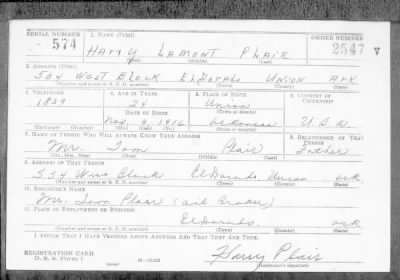 SERIAL NUMBER 1. NAME (Print) ORDER NUMBER
574 HARRY LAMONT PLAIR 2547 V
(First) (Middle) (Last)
2. ADDRESS (Print)
534 WEST BLOCK ELDORADO UNION ARK
(Number and street or R. F. D. number) (Town) (County) (State)
3. TELEPHONE 4. AGE IN YEARS 5. PLACE OF BIRTH 6. COUNTRY OF CITIZENSHIP
1839 24 Union
DATE OF BIRTH (Town or county)
Nov. 9 1916 Arkansas U.S.A
(Exchange) (Number) (Mo.) (Day) (Yr.) (State or country)
7. NAME OF PERSON WHO WILL ALWAYS KNOW YOUR ADDRESS 8. RELATIONSHIP OF THAT PERSON
Mr. Tom Plair Father
(Mr., Mrs., Miss) (First) (Middle) (Last)
9. ADDRESS OF THAT PERSON
534 West Block ElDorado Union Ark
(Number and street or R. F. D. number) (Town) (County) (State)
10. EMPLOYER'S NAME
Mr. Tom Plair (oil Broker)
11. PLACE OF EMPLOYMENT OR BUSINESS
ElDorado. Ark
(Number and street or R. F. D. number) (Town) (County) (State)
I AFFIRM THAT I HAVE VERIFIED ABOVE ANSWERS AND THAT THEY ARE TRUE.
REGISTRATION CARD Harry Plair
D. S. S. Form 1 16—17105 (Registrant's signature)